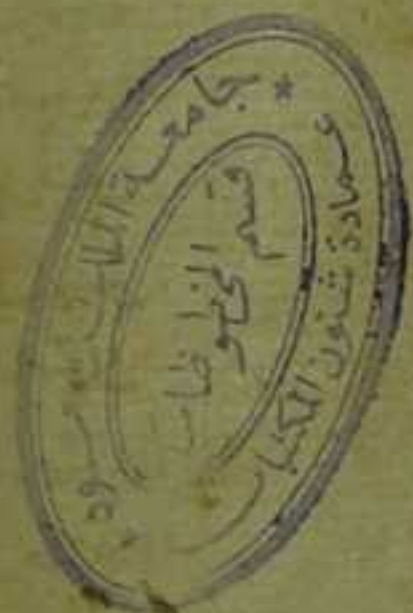 جامعة الملك سعود *
عمادة شئون المكتبات *
قسم المخطوطات